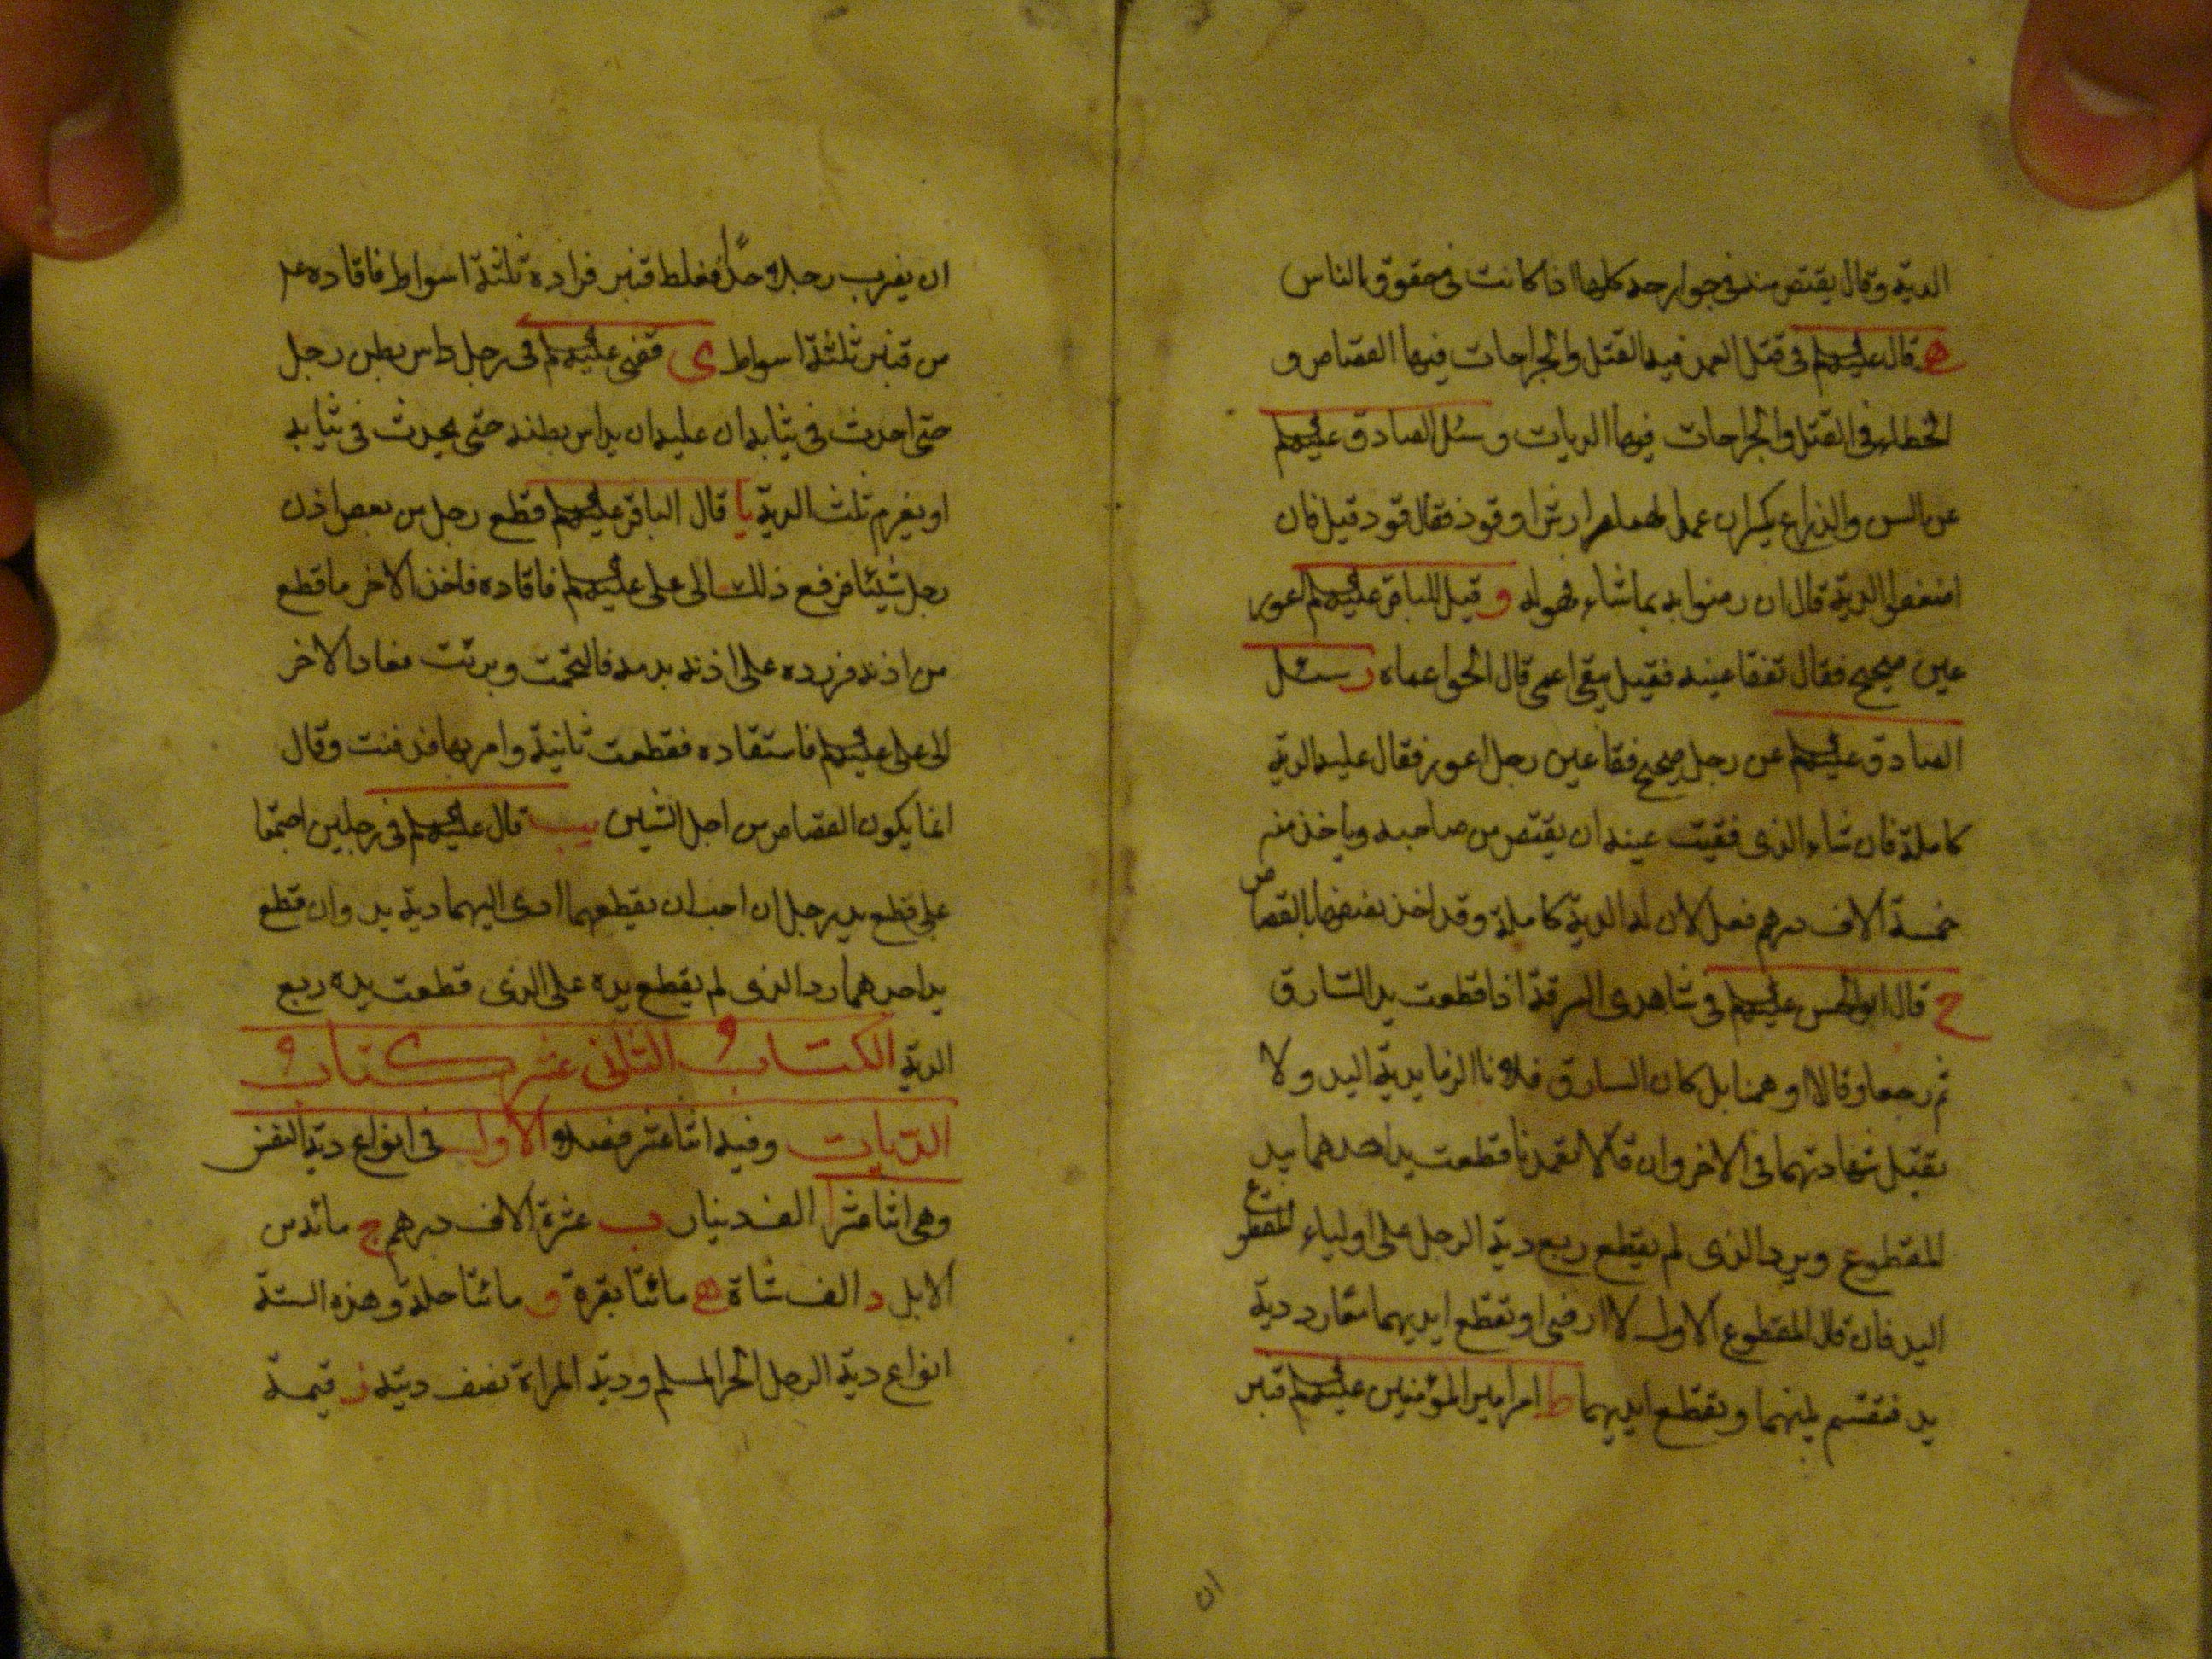 الدية وقال يقتص منه في جوارحه كلها اذا كانت في حقوق الناس
ه قال عليه السلم في قتل العمد فيه القتل والجراحات فيها القصاص و
الخطاء في القتل والجراحات فيها الديات وسئل الصادق عليه السلم
عن السن والذراع يكسران عمدا لهما ارش او قود فقال قود قيل فان
اضعفوا الدية قال ان رضوا به بما شاء فهو له و قيل للباقر عليه السلم اعور
عين صحيح فقال تفقا عينه فقيل يبقى اعمى قال الحق اعماه ز سئل
الصادق عليه السلم عن رجل صحيح فقا عين رجل اعور فقال عليه الدية
كاملة فان شاء الذى فقيت عينه ان يقتص من صاحبه وياخذ منه
خمسة الاف درهم فعل لان له الدية كاملة وقد اخذ نصفها بالقصاص
ح قال ابو الحسن عليه السلم في شاهدى السرقة اذا قطعت يد السارق
ثم رجعا وقالا اوهمنا بل كان السارق فلانا الزما بدية اليد ولا
تقبل شهادتهما في الاخر وان قالا تعمدنا قطعت يد احدهما بيد
المقطوع ويرد الذى لم يقطع ربع دية الرجل على اولياء المقطوع
اليد فان قال المقطوع الاول لا ارضى او تقطع ايديهما معا رد دية
يد فتقسم بينهما وتقطع ايديهما ط امر امير المؤمنين عليه السلم قنبر
ان
ان يضرب رجلا حدا فغلط قنبر فزاده ثلثة اسواط فاقاده على
من قنبر ثلثة اسواط ى قضى عليه السلم في رجل داس بطن رجل
حتى احدث في ثيابه ان عليه ان يداس بطنه حتى يحدث في ثيابه
او يغرم ثلث الدية يا قال الباقر عليه السلم قطع رجل من بعض اذن
رجل شيئا فرفع ذلك الى على عليه السلم فاقاده فاخذ الاخر ما قطع
من اذنه فرده على اذنه بدمه فالتحمت وبرئت فعاد الاخر
الى على عليه السلم فاستقاده فقطعت ثانية وامر بها فدفنت وقال
انما يكون القصاص من اجل الشين يب قال عليه السلم في رجلين اجتمعا
على قطع يد رجل ان احب ان يقطعهما ادى اليهما دية يد وان قطع
يد احدهما رد الذى لم يقطع يده على الذى قطعت يده ربع
الدية الكتاب الثانى عشر كتاب
الديات وفيه اثنا عشر فصلا الاول في انواع دية النفس
وهى اثنا عشر ا الف دينار ب عشرة الاف درهم ج مائة من
الابل د الف شاة ه مائتا بقرة و مائتا حلة وهذه الستة
انواع دية الرجل الحر المسلم ودية المراة نصف ديته ز قيمة